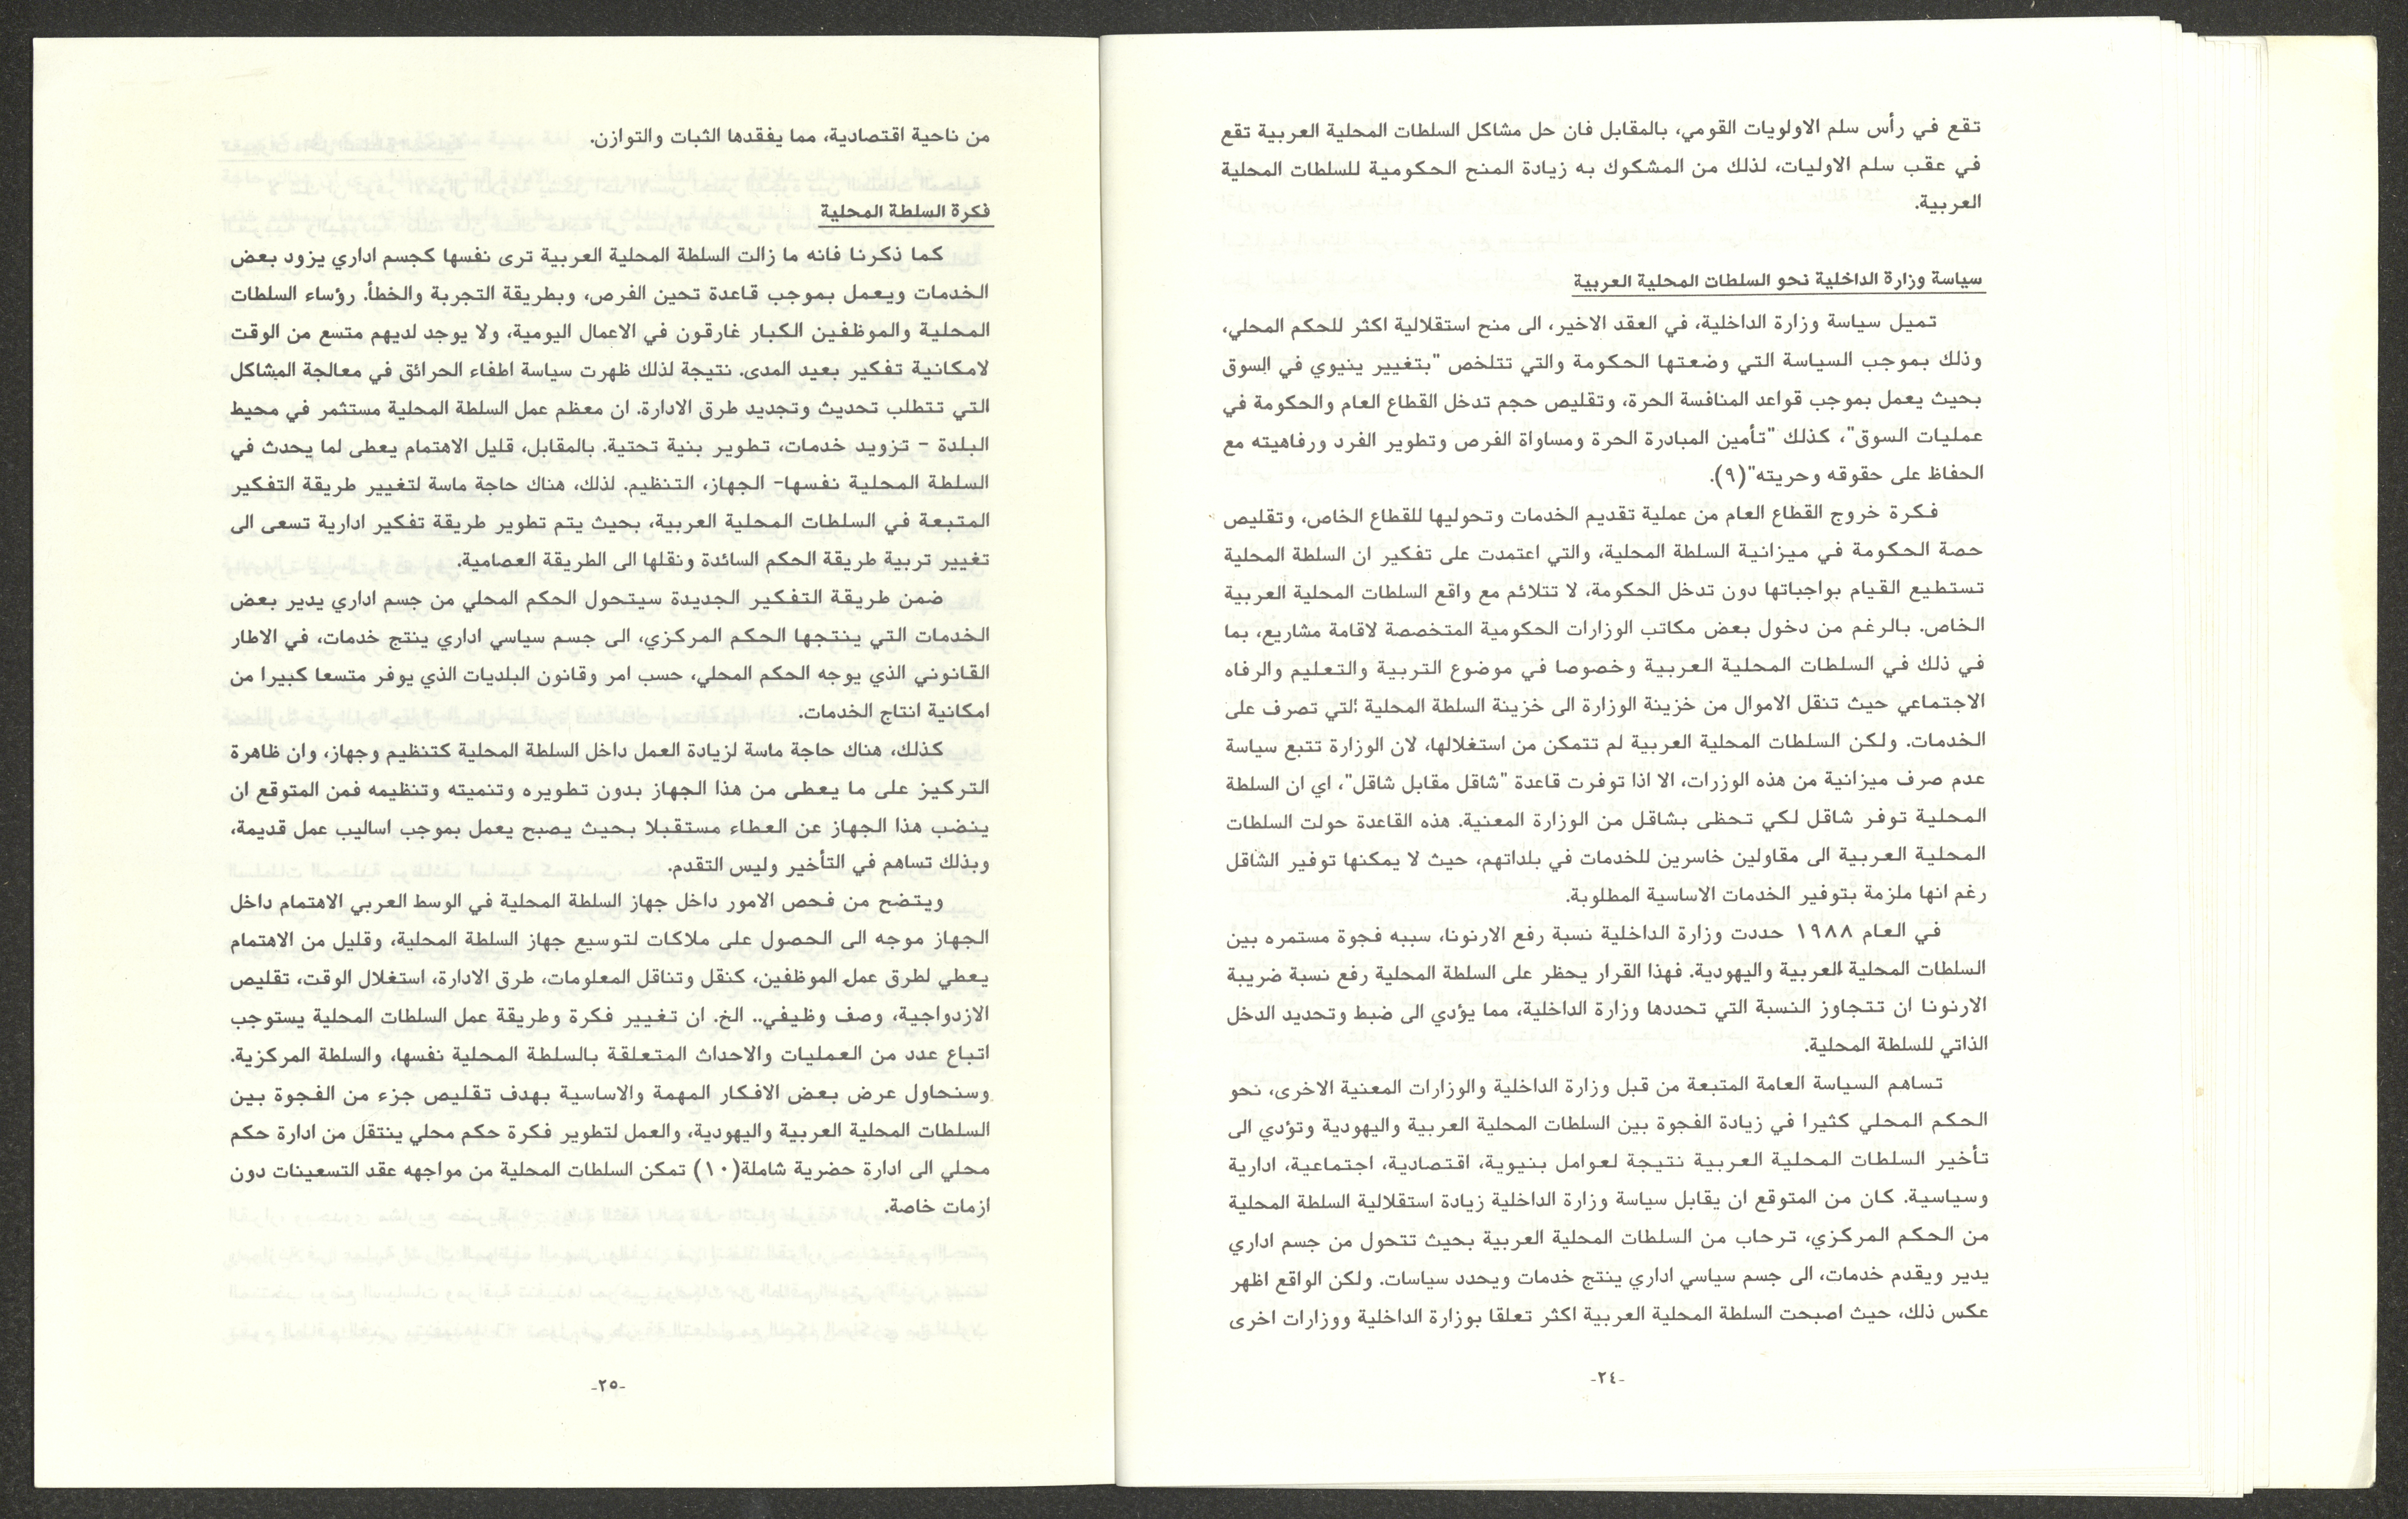 تقع في رأس سلم الاولويات القومي، بالمقابل فان حل مشاكل السلطات المحلية العربية تقع
في عقب سلم الاوليات، لذلك من المشكوك به زيادة المنح الحكومية للسلطات المحلية
العربية.
سياسة وزارة الداخلية نحو السلطات المحلية العربية
تميل سياسة وزارة الداخلية، في العقد الاخير، الى منح استقلالية اكثر للحكم المحلي،
وذلك بموجب السياسة التي وضعتها الحكومة والتي تتلخص "بتغيير ينيوي في السوق
بحيث يعمل بموجب قواعد المنافسة الحرة، وتقليص حجم تدخل القطاع العام والحكومة في
عمليات السوق"، كذلك "تأمين المبادرة الحرة ومساواة الفرص وتطوير الفرد ورفاهيته مع
الحفاظ على حقوقه وحريته"(٩).
فكرة خروج القطاع العام من عملية تقديم الخدمات وتحوليها للقطاع الخاص، وتقليص
حصة الحكومة في ميزانية السلطة المحلية، والتي اعتمدت على تفكير ان السلطة المحلية
تستطيع القيام بواجباتها دون تدخل الحكومة، لا تتلائم مع واقع السلطات المحلية العربية
الخاص. بالرغم من دخول بعض مكاتب الوزارات الحكومية المتخصصة لاقامة مشاريع، بما
في ذلك في السلطات المحلية العربية وخصوصا في موضوع التربية والتعليم والرفاه
الاجتماعي حيث تنقل الاموال من خزينة الوزارة الى خزينة السلطة المحلية التي تصرف على
الخدمات. ولكن السلطات المحلية العربية لم تتمكن من استغلالها، لان الوزارة تتبع سياسة
عدم صرف ميزانية من هذه الوزرات، الا اذا توفرت قاعدة "شاقل مقابل شاقل"، اي ان السلطة
المحلية توفر شاقل لكي تحظى بشاقل من الوزارة المعنية. هذه القاعدة حولت السلطات
المحلية العربية الى مقاولين خاسرين للخدمات في بلداتهم، حيث لا يمكنها توفير الشاقل
رغم انها ملزمة بتوفير الخدمات الاساسية المطلوبة.
في العام ١٩٨٨ حددت وزارة الداخلية نسبة رفع الارنونا، سببه فجوة مستمره بين
السلطات المحلية العربية واليهودية. فهذا القرار يحظر على السلطة المحلية رفع نسبة ضريبة
الارنونا ان تتجاوز النسبة التي تحددها وزارة الداخلية، مما يؤدي الى ضبط وتحديد الدخل
الذاتي للسلطة المحلية.
تساهم السياسة العامة المتبعة من قبل وزارة الداخلية والوزارات المعنية الاخرى، نحو
الحكم المحلي كثيرا في زيادة الفجوة بين السلطات المحلية العربية واليهودية وتؤدي الى
تأخير السلطات المحلية العربية نتيجة لعوامل بنيوية، اقتصادية، اجتماعية، ادارية
وسياسية. كان من المتوقع ان يقابل سياسة وزارة الداخلية زيادة استقلالية السلطة المحلية
من الحكم المركزي، ترحاب من السلطات المحلية العربية بحيث تتحول من جسم اداري
يدير ويقدم خدمات، الى جسم سياسي اداري ينتج خدمات ويحدد سياسات. ولكن الواقع اظهر
عكس ذلك، حيث اصبحت السلطة المحلية العربية اكثر تعلقا بوزارة الداخلية ووزارات اخرى
-٢٤-
من ناحية اقتصادية، مما يفقدها الثبات والتوازن.
فكرة السلطة المحلية
كما ذكرنا فانه ما زالت السلطة المحلية العربية ترى نفسها كجسم اداري يزود بعض
الخدمات ويعمل بموجب قاعدة تحين الفرص، وبطريقة التجربة والخطأ. رؤساء السلطات
المحلية والموظفين الكبار غارقون في الاعمال اليومية، ولا يوجد لديهم متسع من الوقت
لامكانية تفكير بعيد المدى. نتيجة لذلك ظهرت سياسة اطفاء الحرائق في معالجة المشاكل
التي تتطلب تحديث وتجديد طرق الادارة. ان معظم عمل السلطة المحلية مستثمر في محيط
البلدة - تزويد خدمات، تطوير بنية تحتية. بالمقابل، قليل الاهتمام يعطى لما يحدث في
السلطة المحلية نفسها- الجهاز، التنظيم. لذلك، هناك حاجة ماسة لتغيير طريقة التفكير
المتبعة في السلطات المحلية العربية، بحيث يتم تطوير طريقة تفكير ادارية تسعى الى
تغيير تربية طريقة الحكم السائدة ونقلها الى الطريقة العصامية.
ضمن طريقة التفكير الجديدة سيتحول الحكم المحلي من جسم اداري يدير بعض
الخدمات التي ينتجها الحكم المركزي، الى جسم سياسي اداري ينتج خدمات، في الاطار
القانوني الذي يوجه الحكم المحلي، حسب امر وقانون البلديات الذي يوفر متسعا كبيرا من
امكانية انتاج الخدمات.
كذلك، هناك حاجة ماسة لزيادة العمل داخل السلطة المحلية كتنظيم وجهاز، وان ظاهرة
التركيز على ما يعطى من هذا الجهاز بدون تطويره وتنميته وتنظيمه فمن المتوقع ان
ينضب هذا الجهاز عن العطاء مستقبلا بحيث يصبح يعمل بموجب اساليب عمل قديمة،
وبذلك تساهم في التأخير وليس التقدم.
ويتضح من فحص الامور داخل جهاز السلطة المحلية في الوسط العربي الاهتمام داخل
الجهاز موجه الى الحصول على ملاكات لتوسيع جهاز السلطة المحلية، وقليل من الاهتمام
يعطي لطرق عمل الموظفين، كنقل وتناقل المعلومات، طرق الادارة، استغلال الوقت، تقليص
الازدواجية، وصف وظيفي.. الخ. ان تغيير فكرة وطريقة عمل السلطات المحلية يستوجب
اتباع عدد من العمليات والاحداث المتعلقة بالسلطة المحلية نفسها، والسلطة المركزية.
وسنحاول عرض بعض الافكار المهمة والاساسية بهدف تقليص جزء من الفجوة بين
السلطات المحلية العربية واليهودية، والعمل لتطوير فكرة حكم محلي ينتقل من ادارة حكم
محلي الى ادارة حضرية شاملة(١٠) تمكن السلطات المحلية من مواجهه عقد التسعينات دون
ازمات خاصة.
-٢٥-